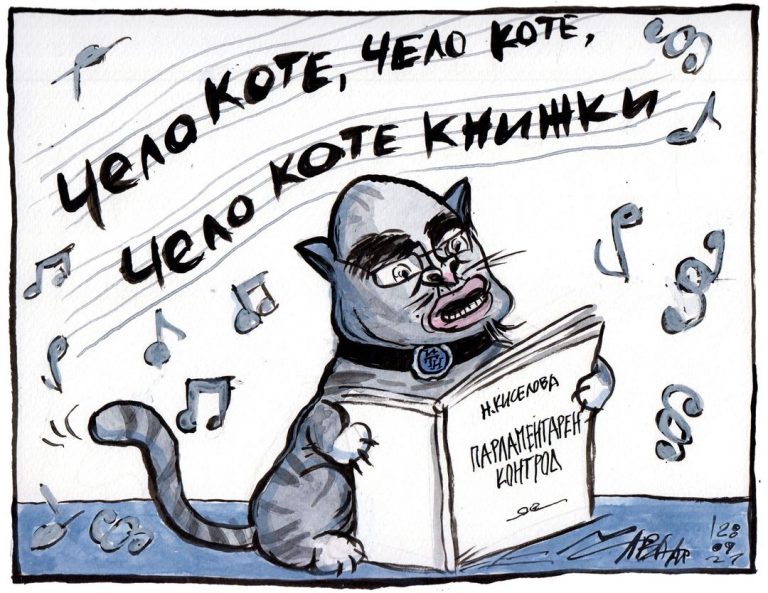 чело КОТЕ, чело КОТЕ,
чело КОТЕ КНИЖКИ
Н. КИСЕЛОВА
ПАРЛАМЕНТАРЕН
КОНТРОЛ